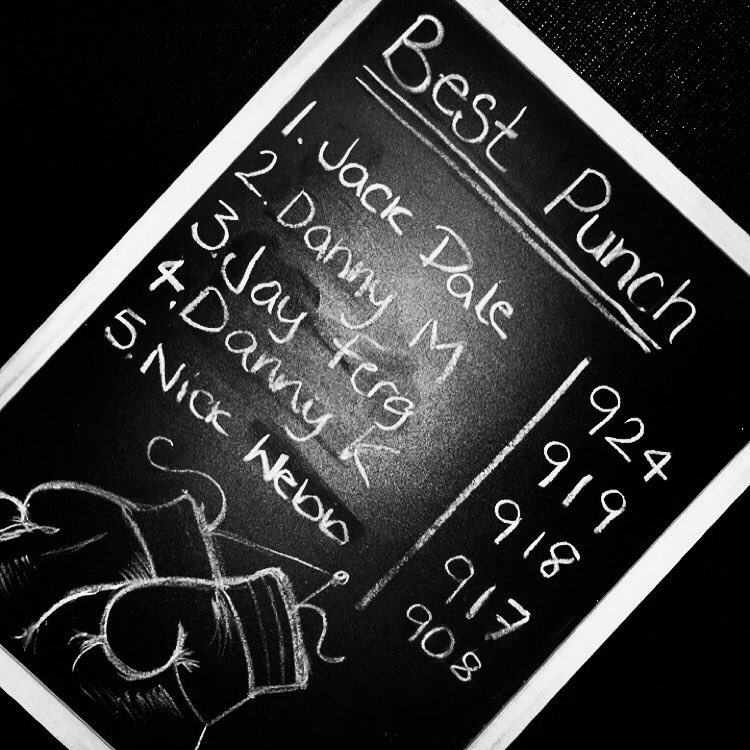 Best Punch
1. Jack Dale 924
2. Danny M 919
3. Jay Ferg 918
4. Danny K 917
5. Nick Webb 908